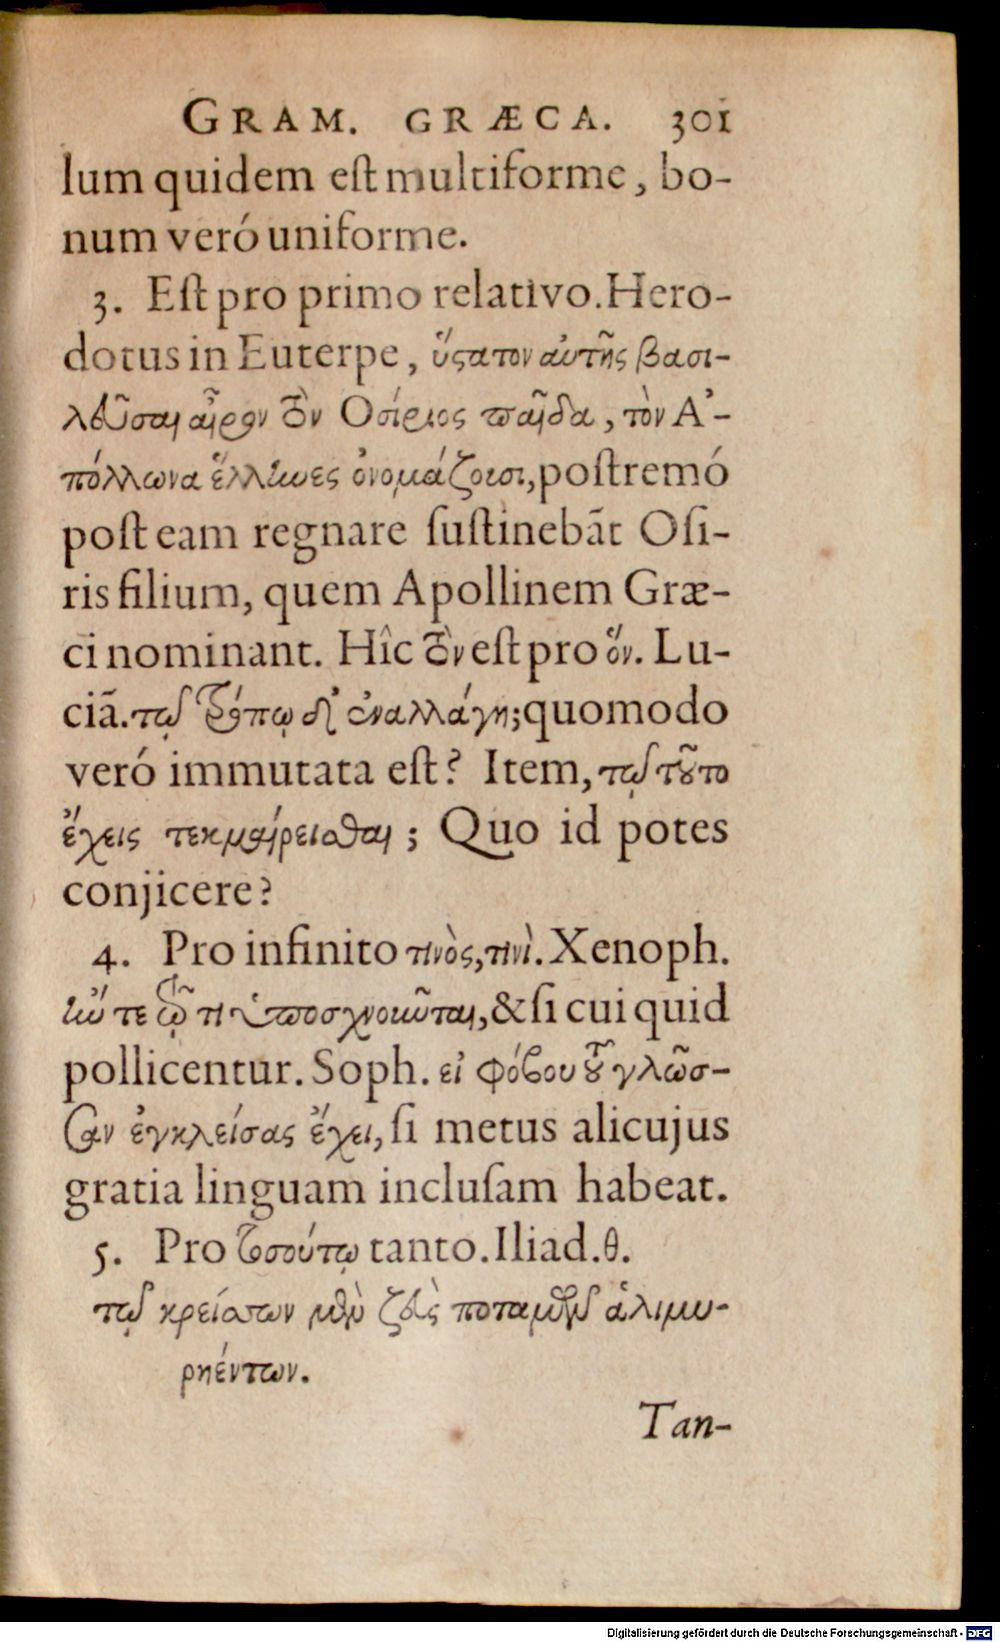 GRAM. GRÆCA. 301
lum quidem eſt multiforme, bo-
num veró uniforme.
3. Eſt pro primo relativo. Hero-
dotus in Euterpe, ὕςατον αὐτῆς βασι-
λεῦσαι αἶρον τὸν Οσίριος παῖδα, τὸν Α᾽-
πόλλωνα ἕλληνες ὀνομάζουσι, poſtremó
poſt eam regnare ſuſtinebãt Oſi-
ris filium, quem Apollinem Græ-
ci nominant. Hîc τὸν eſt pro ὅν. Lu-
ciã. τῷ τρόπῳ δι᾽ ἐναλλάγη; quomodo
veró immutata eſt? Item, τῷ τοῦτο
ἔχεις τεκμαίρεισθαι; Quo id potes
conjicere?
4. Pro infinito τινὸς, τινὶ. Xenoph.
ἤν τε τῷ τι ὑποσχνοιῦται, & ſi cui quid
pollicentur. Soph. εἰ φόβου τοῦ γλῶσ-
σαν ἐγκλείσας ἔχει, ſi metus alicujus
gratia linguam incluſam habeat.
5. Pro τοσούτῳ tanto. Iliad. θ.
τῷ κρείσσων μὲν ζεὺς ποταμῶν ἁλιμυ-
ρηέντων.
Tan-
Digitalisierung gefördert durch die Deutsche Forschungsgemeinschaft - DFG